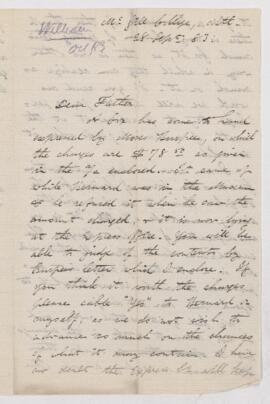 William
Oct 83
McGill College, Mtl
28 Sep 83
Dear Father
A box has come to hand
expressed by Moses Burpee, on which
the charges are $78 as given
in the a/c enclosed. It came
while Bernard was in the Museum
& he refused it when he saw the
amount charged, & it is now lying
at the Express office. You will be
able to judge of the contents by
Burpees letter which I enclose. If
you think it worth the charges
please cable "Yes" to Bernard or
myself, as we do not wish to
advance so much on the chances
of what it may contain. I have
no doubt the Express Co will keep